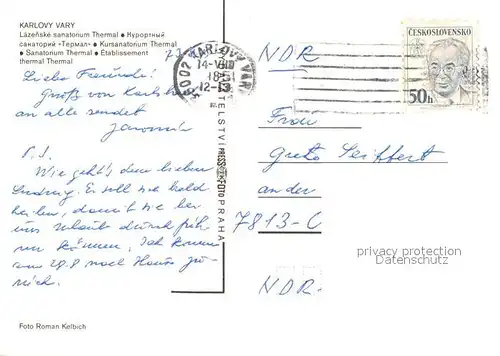 KARLOVY VARY
Lázeňské sanatorium Thermal • Курортный
санаторий «Термал» • Kursanatorium Thermal
• Sanatorium Thermal • Établissement
thermal Thermal
Liebe Freunde!
Gruß von Karlsb
an alle sendet
Jaromir
P.S.
Wie geht's dem lieben
Ludwig. Er soll sie bald
heilen, damit sie bei
uns Urlaub durchfüh-
ren können. Ich komme
am 29.8 nach Hause zu-
rück.
Foto Roman Kelbich
PRESSFOTO PRAHA
KARLOVY VARY
14-VIII
12-13
ČESKOSLOVENSKO
50h
NDR
Frau
Greta Seiffert
an der
7813-C
NDR
privacy protection
Datenschutz